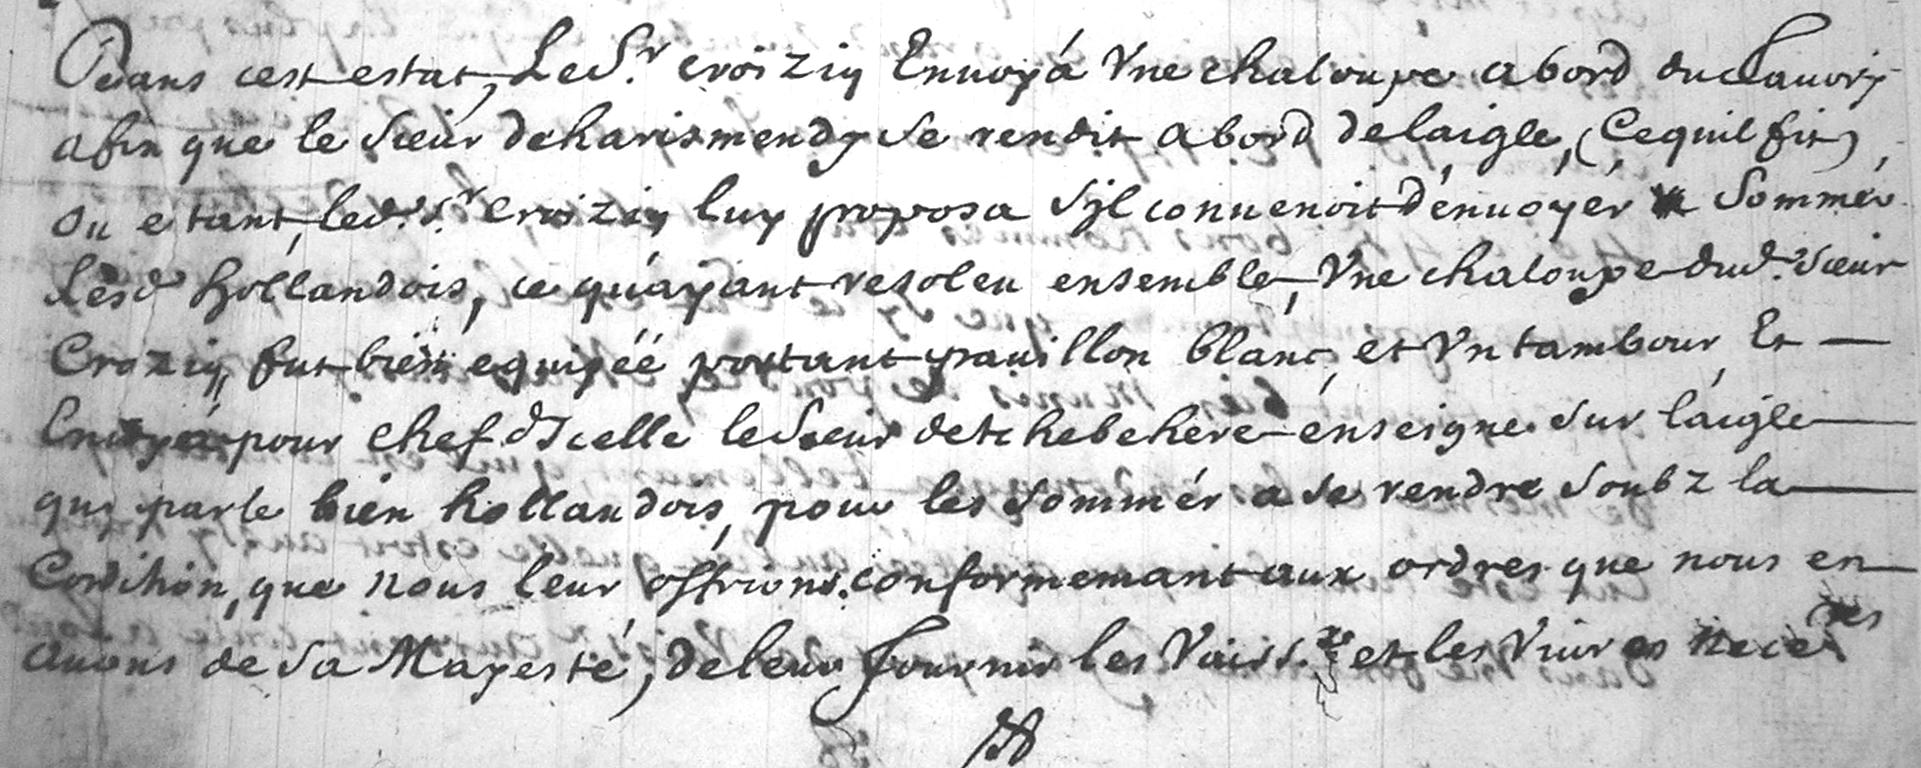 Dans cest estat, Le S.r croiziq Enuoyá Vne chaloupe a bord du fauory
afin que le Sieur deharismendy se rendit a bord de laigle, (Cequil fit),
ou etant, led. S.r Croiziq luy proposa Sjl conuenoit d'enuoyér Sommér
Lesd hollandois, ce qu'ayant resoleu ensemble, Vne chaloupe dud. Sieur
Croziq, fut bien equipéé portant pauillon blanc, et Vn tambour, Et
Enuoyá pour chef dJcelle le Sieur detchebehere enseigne sur laigle
quj parle bien hollandois, pour les Sommér a se rendre Soubz la
Condition, que nous leur offrions conformemant aux ordres que nous en
auons de Sa Mayesté, de leur fournir les Vaiss.x et les Viures nece.res